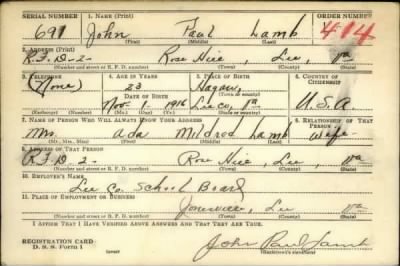 SERIAL NUMBER 1. NAME (Print) ORDER NUMBER
691 John Paul Lamb 414
(First) (Middle) (Last)
2. ADDRESS (Print)
R.F.D-2- Rose Hill, Lee, Va
(Number and street or R. F. D. number) (Town) (County) (State)
3. TELEPHONE 4. AGE IN YEARS 5. PLACE OF BIRTH 6. COUNTRY OF CITIZENSHIP
(None) 23
DATE OF BIRTH (Town or county)
Nov. 1. 1916 Lee Co, Va U.S.A.
(Exchange) (Number) (Mo.) (Day) (Yr.) (State or country)
7. NAME OF PERSON WHO WILL ALWAYS KNOW YOUR ADDRESS 8. RELATIONSHIP OF THAT PERSON
Mrs. Ada Mildred Lamb Wife
(Mr., Mrs., Miss) (First) (Middle) (Last)
9. ADDRESS OF THAT PERSON
R.F.D-2- Rose Hill, Lee, Va
(Number and street or R. F. D. number) (Town) (County) (State)
10. EMPLOYER'S NAME
Lee Co. School Board
11. PLACE OF EMPLOYMENT OR BUSINESS
Jonesville, Lee Va
(Number and street or R. F. D. number) (Town) (County) (State)
I AFFIRM THAT I HAVE VERIFIED ABOVE ANSWERS AND THAT THEY ARE TRUE.
REGISTRATION CARD
D. S. S. Form 1 John Paul Lamb
(Registrant's signature)